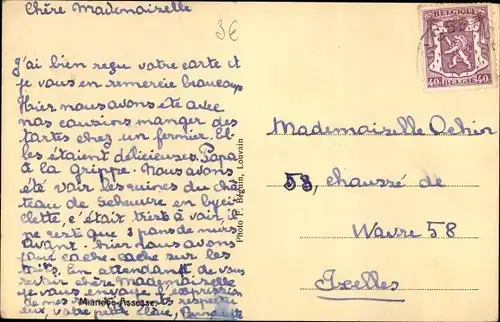 Chère Mademoiselle
3€
J'ai bien reçu votre carte et
je vous en remercie beaucoup
Hier nous avons été avec
nos cousins manger des
tartes chez un fermier. El-
les étaient délicieuses. Papa
à la grippe. Nous avons
été voir les ruines du châ-
teau de en byci-
clette, c'était triste à voir, il
ne reste que 3 pans de murs
Avant-hier nous avons
joué cache-cache sur les
toits. En attendant de vous
chère Mademoiselle
je vous envoye l'expression
de mes respectu
eux votre petit élève, Bernadette
Mianoye-Assesse
Photo F. Béguin, Louvain
BELGIQUE
40 40
BELGIE
Mademoiselle Ochin
58, chaussé de
Wavre 58
Ixelles